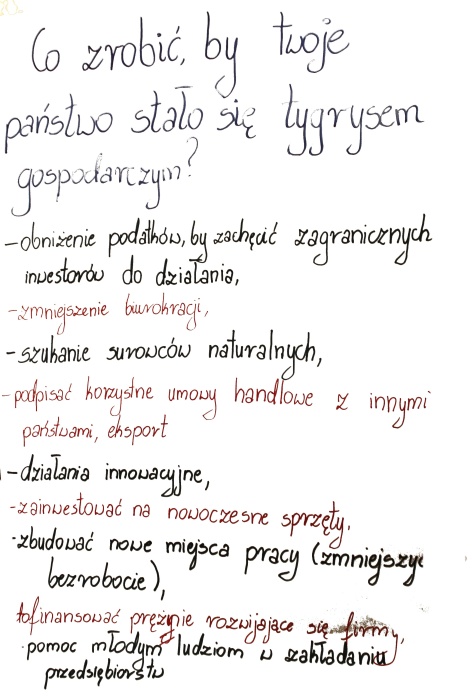 Co zrobić, by twoje
państwo stało się tygrysem
gospodarczym?
-obniżenie podatków, by zachęcić zagranicznych
inwestorów do działania,
-zmniejszenie biurokracji,
-szukanie surowców naturalnych,
-podpisać korzystne umowy handlowe z innymi
państwami, eksport
-działania innowacyjne,
-zainwestować na nowoczesne sprzęty.
-zbudować nowe miejsca pracy (zmniejszyć
bezrobocie),
dofinansować prężnie rozwijające się firmy,
-pomoc młodym ludziom w zakładaniu
przedsiębiorstw